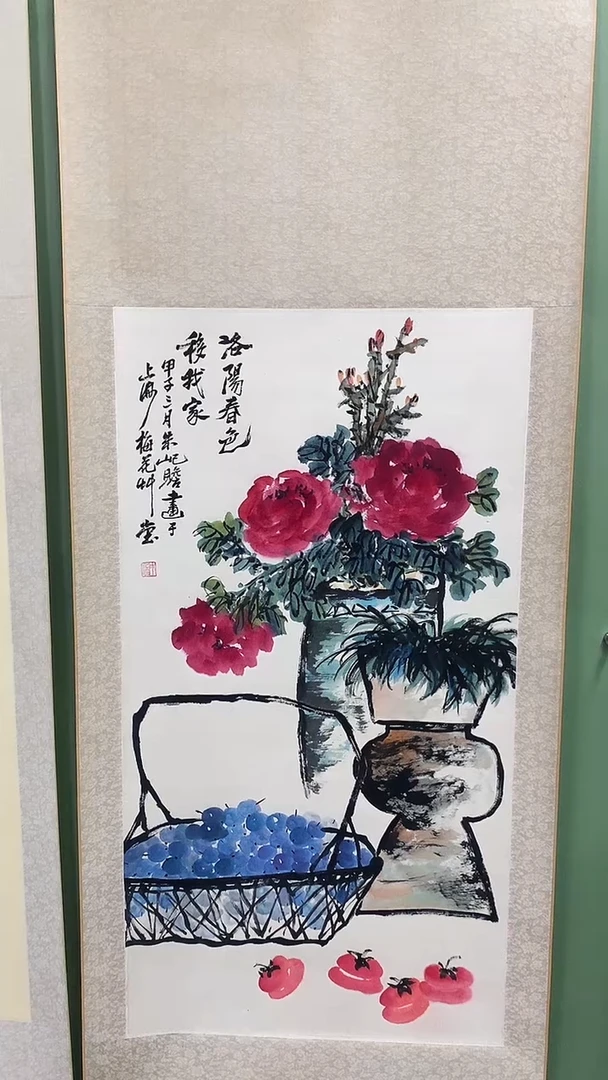 洛陽春色
移我家
甲子三月朱屺瞻畫于
上海梅花草堂